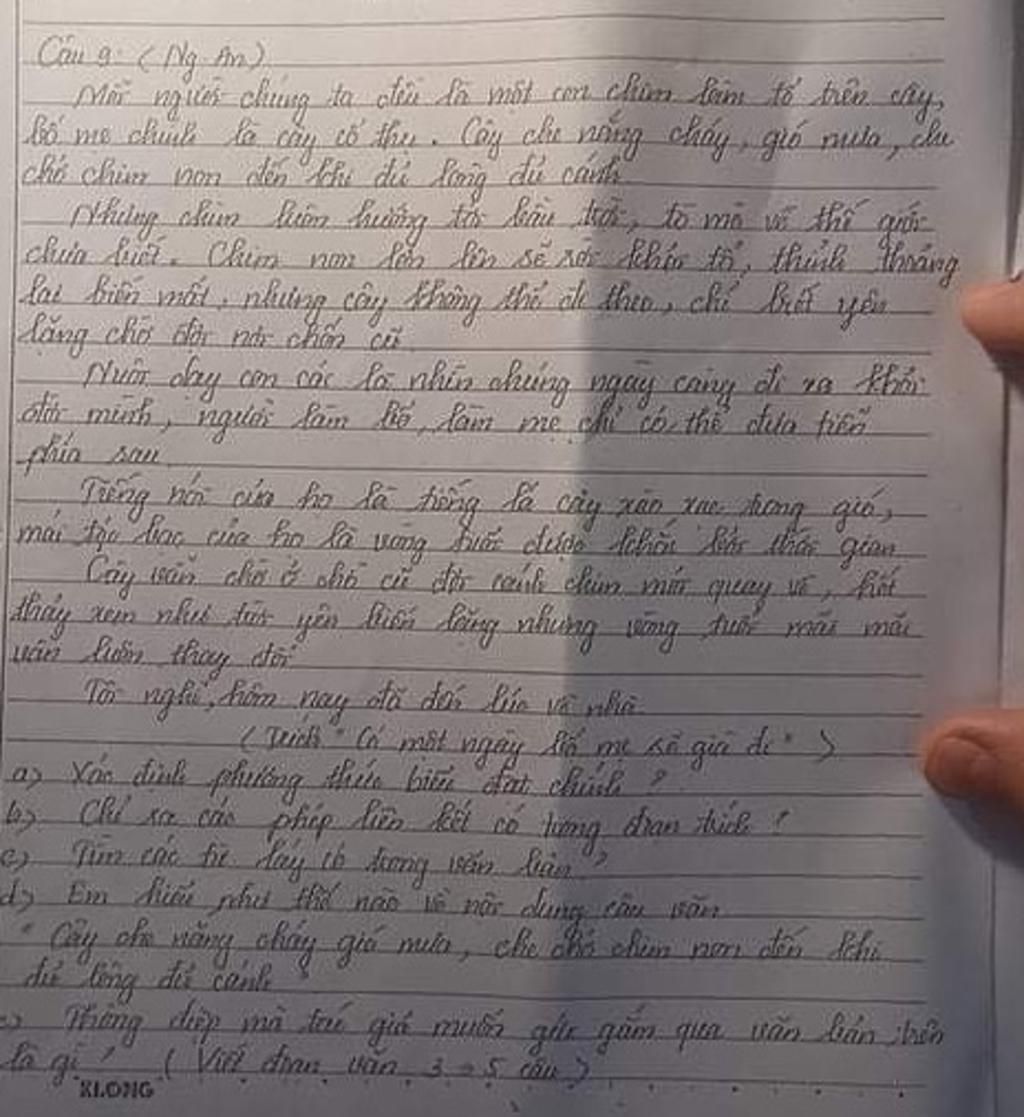 Câu 9: (Ng. An)
Mỗi người chúng ta đều là một con chim làm tổ trên cây,
bố mẹ chính là cây cổ thụ. Cây che nắng cháy, gió mưa, che
chở chim non đến khi đủ lông đủ cánh
Nhưng chim luôn hướng tới bầu trời, tò mò về thế giới
chưa biết. Chim non lớn lên sẽ rời khỏi tổ, thỉnh thoảng
lại biến mất, nhưng cây không thể đi theo, chỉ biết yên
lặng chờ đợi nơi chốn cũ
Nuôi dạy con cái là nhìn chúng ngày càng đi xa khỏi
đời mình, người làm bố, làm mẹ chỉ có thể đưa tiễn
phía sau
Tiếng nói của họ là tiếng lá cây xào xạc trong gió,
mái tóc bạc của họ là vòng tuổi được khắc bởi thời gian
Cây vẫn chờ ở chỗ cũ đợi cánh chim mỏi quay về, hết
thảy xem như tời yên biển lặng nhưng vòng tuổi mãi mãi
vẫn luôn thay đổi
Tôi nghĩ, hôm nay đã đến lúc về nhà
(Trích "Có một ngày bố mẹ sẽ già đi")
a) Xác định phương thức biểu đạt chính?
b) Chỉ ra các phép liên kết có trong đoạn trích?
c) Tìm các từ láy có trong văn bản?
d) Em hiểu như thế nào về nội dung câu văn
"Cây che nắng cháy gió mưa, che chở chim non đến khi
đủ lông đủ cánh"
e) Thông điệp mà tác giả muốn gửi gắm qua văn bản trên
là gì? (Viết đoạn văn 3 → 5 câu)
KLONG